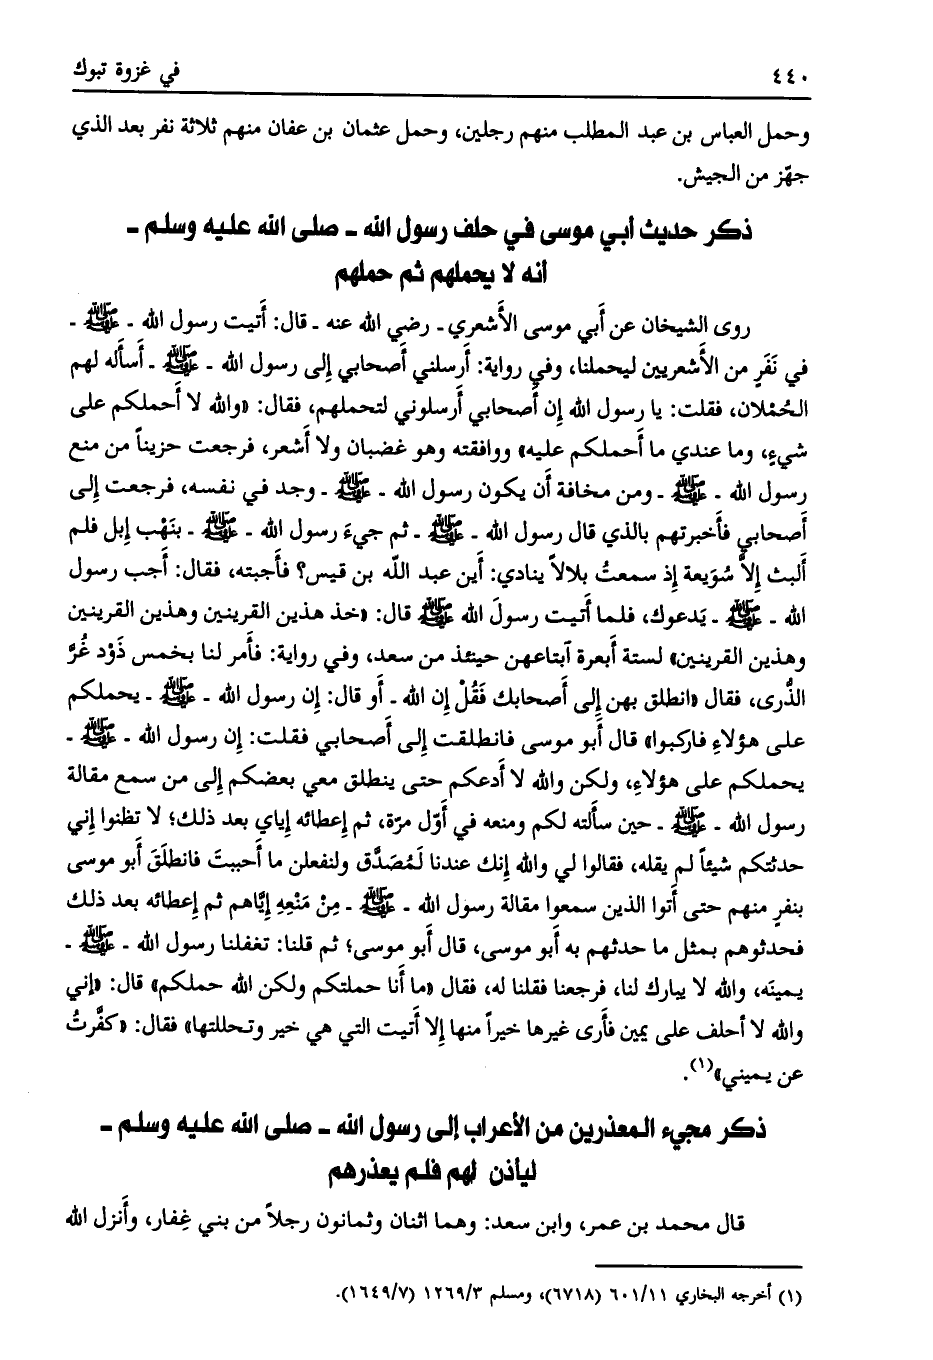 ٤٤٠
في غزوة تبوك
وحمل العباس بن عبد المطلب منهم رجلين، وحمل عثمان بن عفان منهم ثلاثة نفر بعد الذي
جهّز من الجيش.
ذكر حديث أبي موسى في حلف رسول الله ـ صلى الله عليه وسلم ـ
أنه لا يحملهم ثم حملهم
روى الشيخان عن أَبي موسى الأَشعري ـ رضي الله عنه ـ قال: أَتيت رسول الله ـ ﷺ ـ
في نَفَرٍ من الأَشعريين ليحملنا، وفي رواية: أَرسلني أَصحابي إِلى رسول الله ـ ﷺ ـ أَسأَله لهم
الحُمْلان، فقلت: يا رسول الله إِن أَصحابي أَرسلوني لتحملهم، فقال: «والله لا أَحملكم على
شيءٍ، وما عندي ما أَحملكم عليه» ووافقته وهو غضبان ولا أَشعر، فرجعت حزيناً من منع
رسول الله ـ ﷺ ـ ومن مخافة أَن يكون رسول الله ـ ﷺ ـ وجد في نفسه، فرجعت إِلى
أَصحابي فأَخبرتهم بالذي قال رسول الله ـ ﷺ ـ ثم جيءَ رسول الله ـ ﷺ ـ بنَهْب إِبل فلم
أَلبث إِلاَّ سُوَيعة إِذ سمعتُ بلالاً ينادي: أَين عبد اللّه بن قيس؟ فأَجبته، فقال: أَجب رسول
الله ـ ﷺ ـ يَدعوك، فلما أَتيت رسولَ الله ﷺ قال: «خذ هذين القرينين وهذين القرينين
وهذين القرينين» لستة أَبعرة آبتاعهن حينئذ من سعد، وفي رواية: فأَمر لنا بخمس ذَوْد غُرَّ
الذُّرى، فقال «انطلق بهن إِلى أَصحابك فَقُلْ إِن الله ـ أَو قال: إِن رسول الله ـ ﷺ ـ يحملكم
على هؤلاءِ فاركبوا» قال أَبو موسى فانطلقت إِلى أَصحابي فقلت: إِن رسول الله ـ ﷺ ـ
يحملكم على هؤلاءِ، ولكن والله لا أَدعكم حتى ينطلق معي بعضكم إِلى من سمع مقالة
رسول الله ـ ﷺ ـ حين سأَلته لكم ومنعه في أَوّل مرّة، ثم إِعطائه إِياي بعد ذلك؛ لا تظنوا إِني
حدثتكم شيئاً لم يقله، فقالوا لي والله إِنك عندنا لَمُصَدَّق ولنفعلن ما أَحببتَ فانطلَقَ أَبو موسى
بنفرٍ منهم حتى أَتوا الذين سمعوا مقالة رسول الله ـ ﷺ ـ مِنْ مَنْعِهِ إِيَّاهم ثم إِعطائه بعد ذلك
فحدثوهم بمثل ما حدثهم به أَبو موسى، قال أَبو موسى؛ ثم قلنا: تغفلنا رسول الله ـ ﷺ ـ
يمينَه، والله لا يبارك لنا، فرجعنا فقلنا له، فقال «ما أَنا حملتكم ولكن الله حملكم» قال: «إِني
والله لا أحلف على يمين فأَرى غيرها خيراً منها إِلا أَتيت التي هي خير وتحللتها» فقال: «كفَّرتُ
عن يميني»(١).
ذكر مجيء المعذرين من الأعراب إلى رسول الله ـ صلى الله عليه وسلم ـ
ليأذن لهم فلم يعذرهم
قال محمد بن عمر، وابن سعد: وهما اثنان وثمانون رجلاً من بني غِفار، وأَنزل الله
(١) أخرجه البخاري ٦٠١/١١ (٦٧١٨)، ومسلم ١٢٦٩/٣ (١٦٤٩/٧).